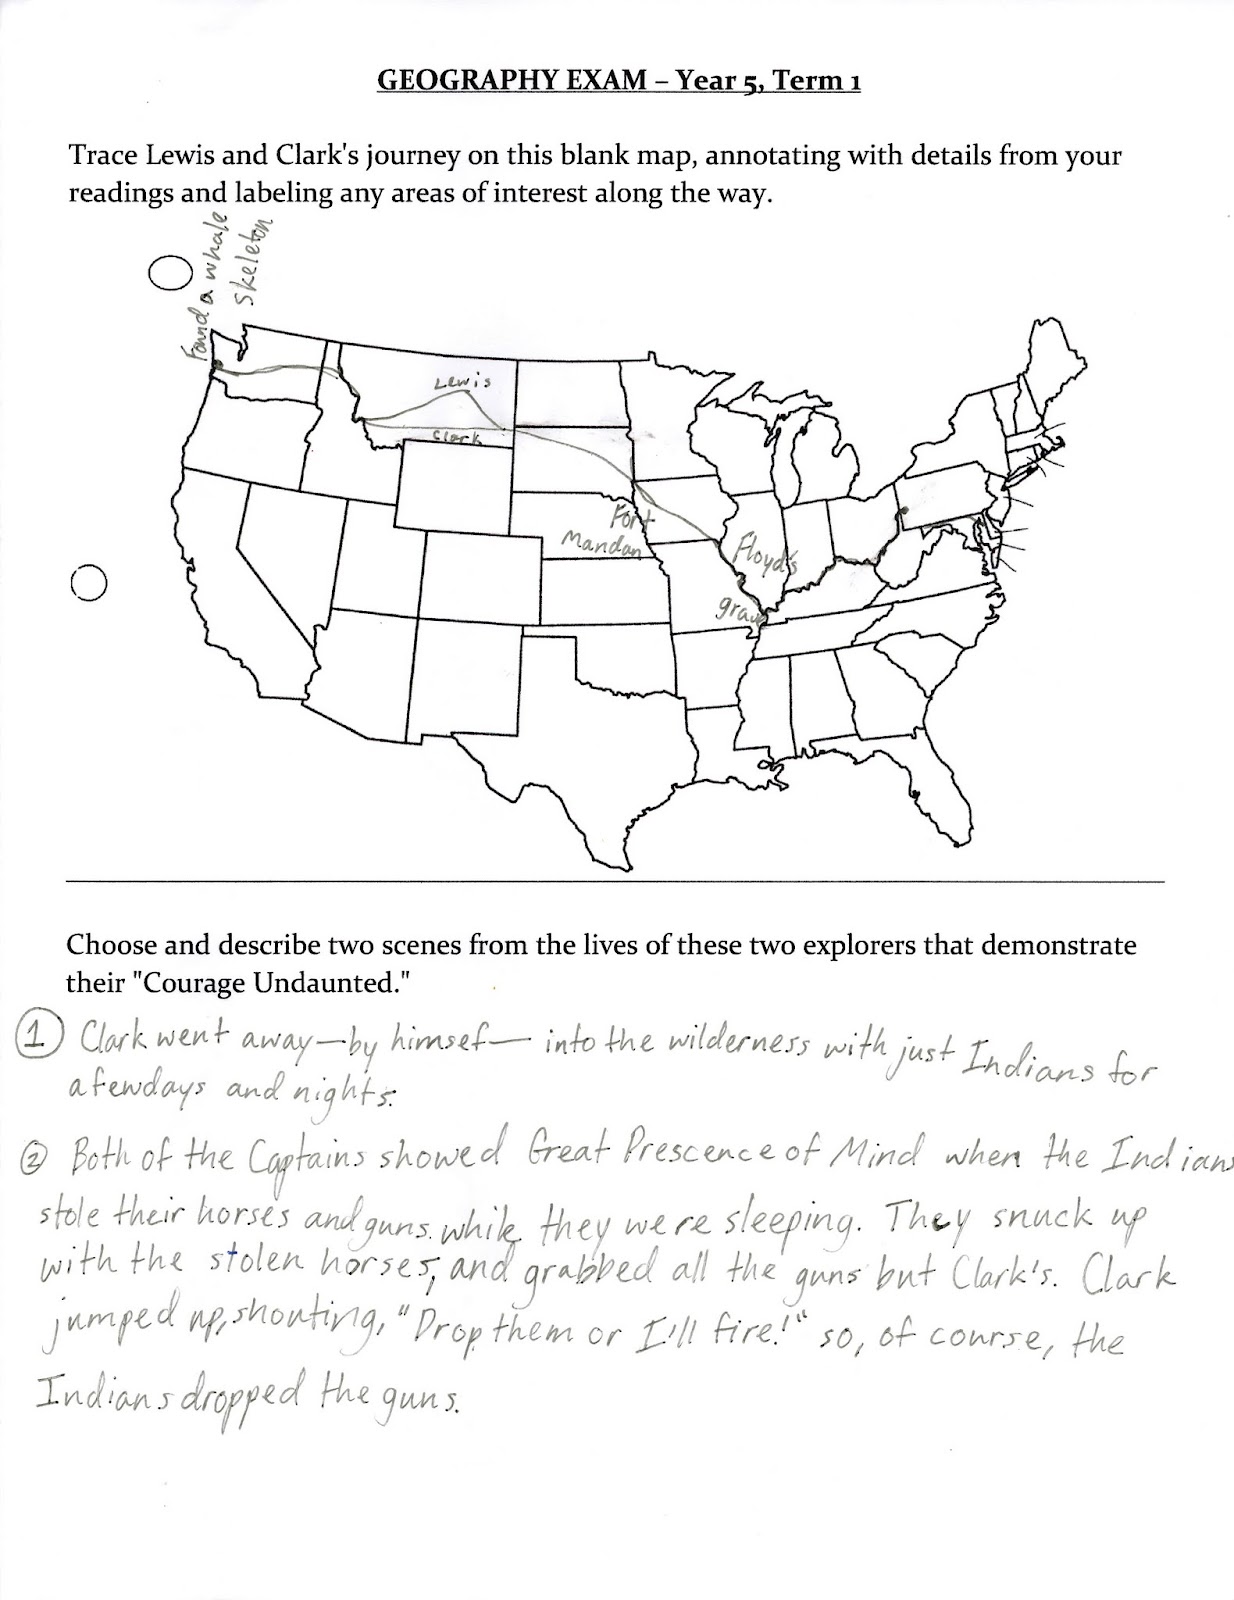 GEOGRAPHY EXAM – Year 5, Term 1
Trace Lewis and Clark's journey on this blank map, annotating with details from your
readings and labeling any areas of interest along the way.
Found a whale
skeleton
Lewis
Clark
Fort
Mandan
Floyd's
grave
Choose and describe two scenes from the lives of these two explorers that demonstrate
their "Courage Undaunted."
① Clark went away—by himsef— into the wilderness with just Indians for
a few days and nights.
② Both of the Captains showed Great Prescence of Mind when the Indians
stole their horses and guns while they were sleeping. They snuck up
with the stolen horses, and grabbed all the guns but Clark's. Clark
jumped up, shouting, "Drop them or I'll fire!" so, of course, the
Indians dropped the guns.